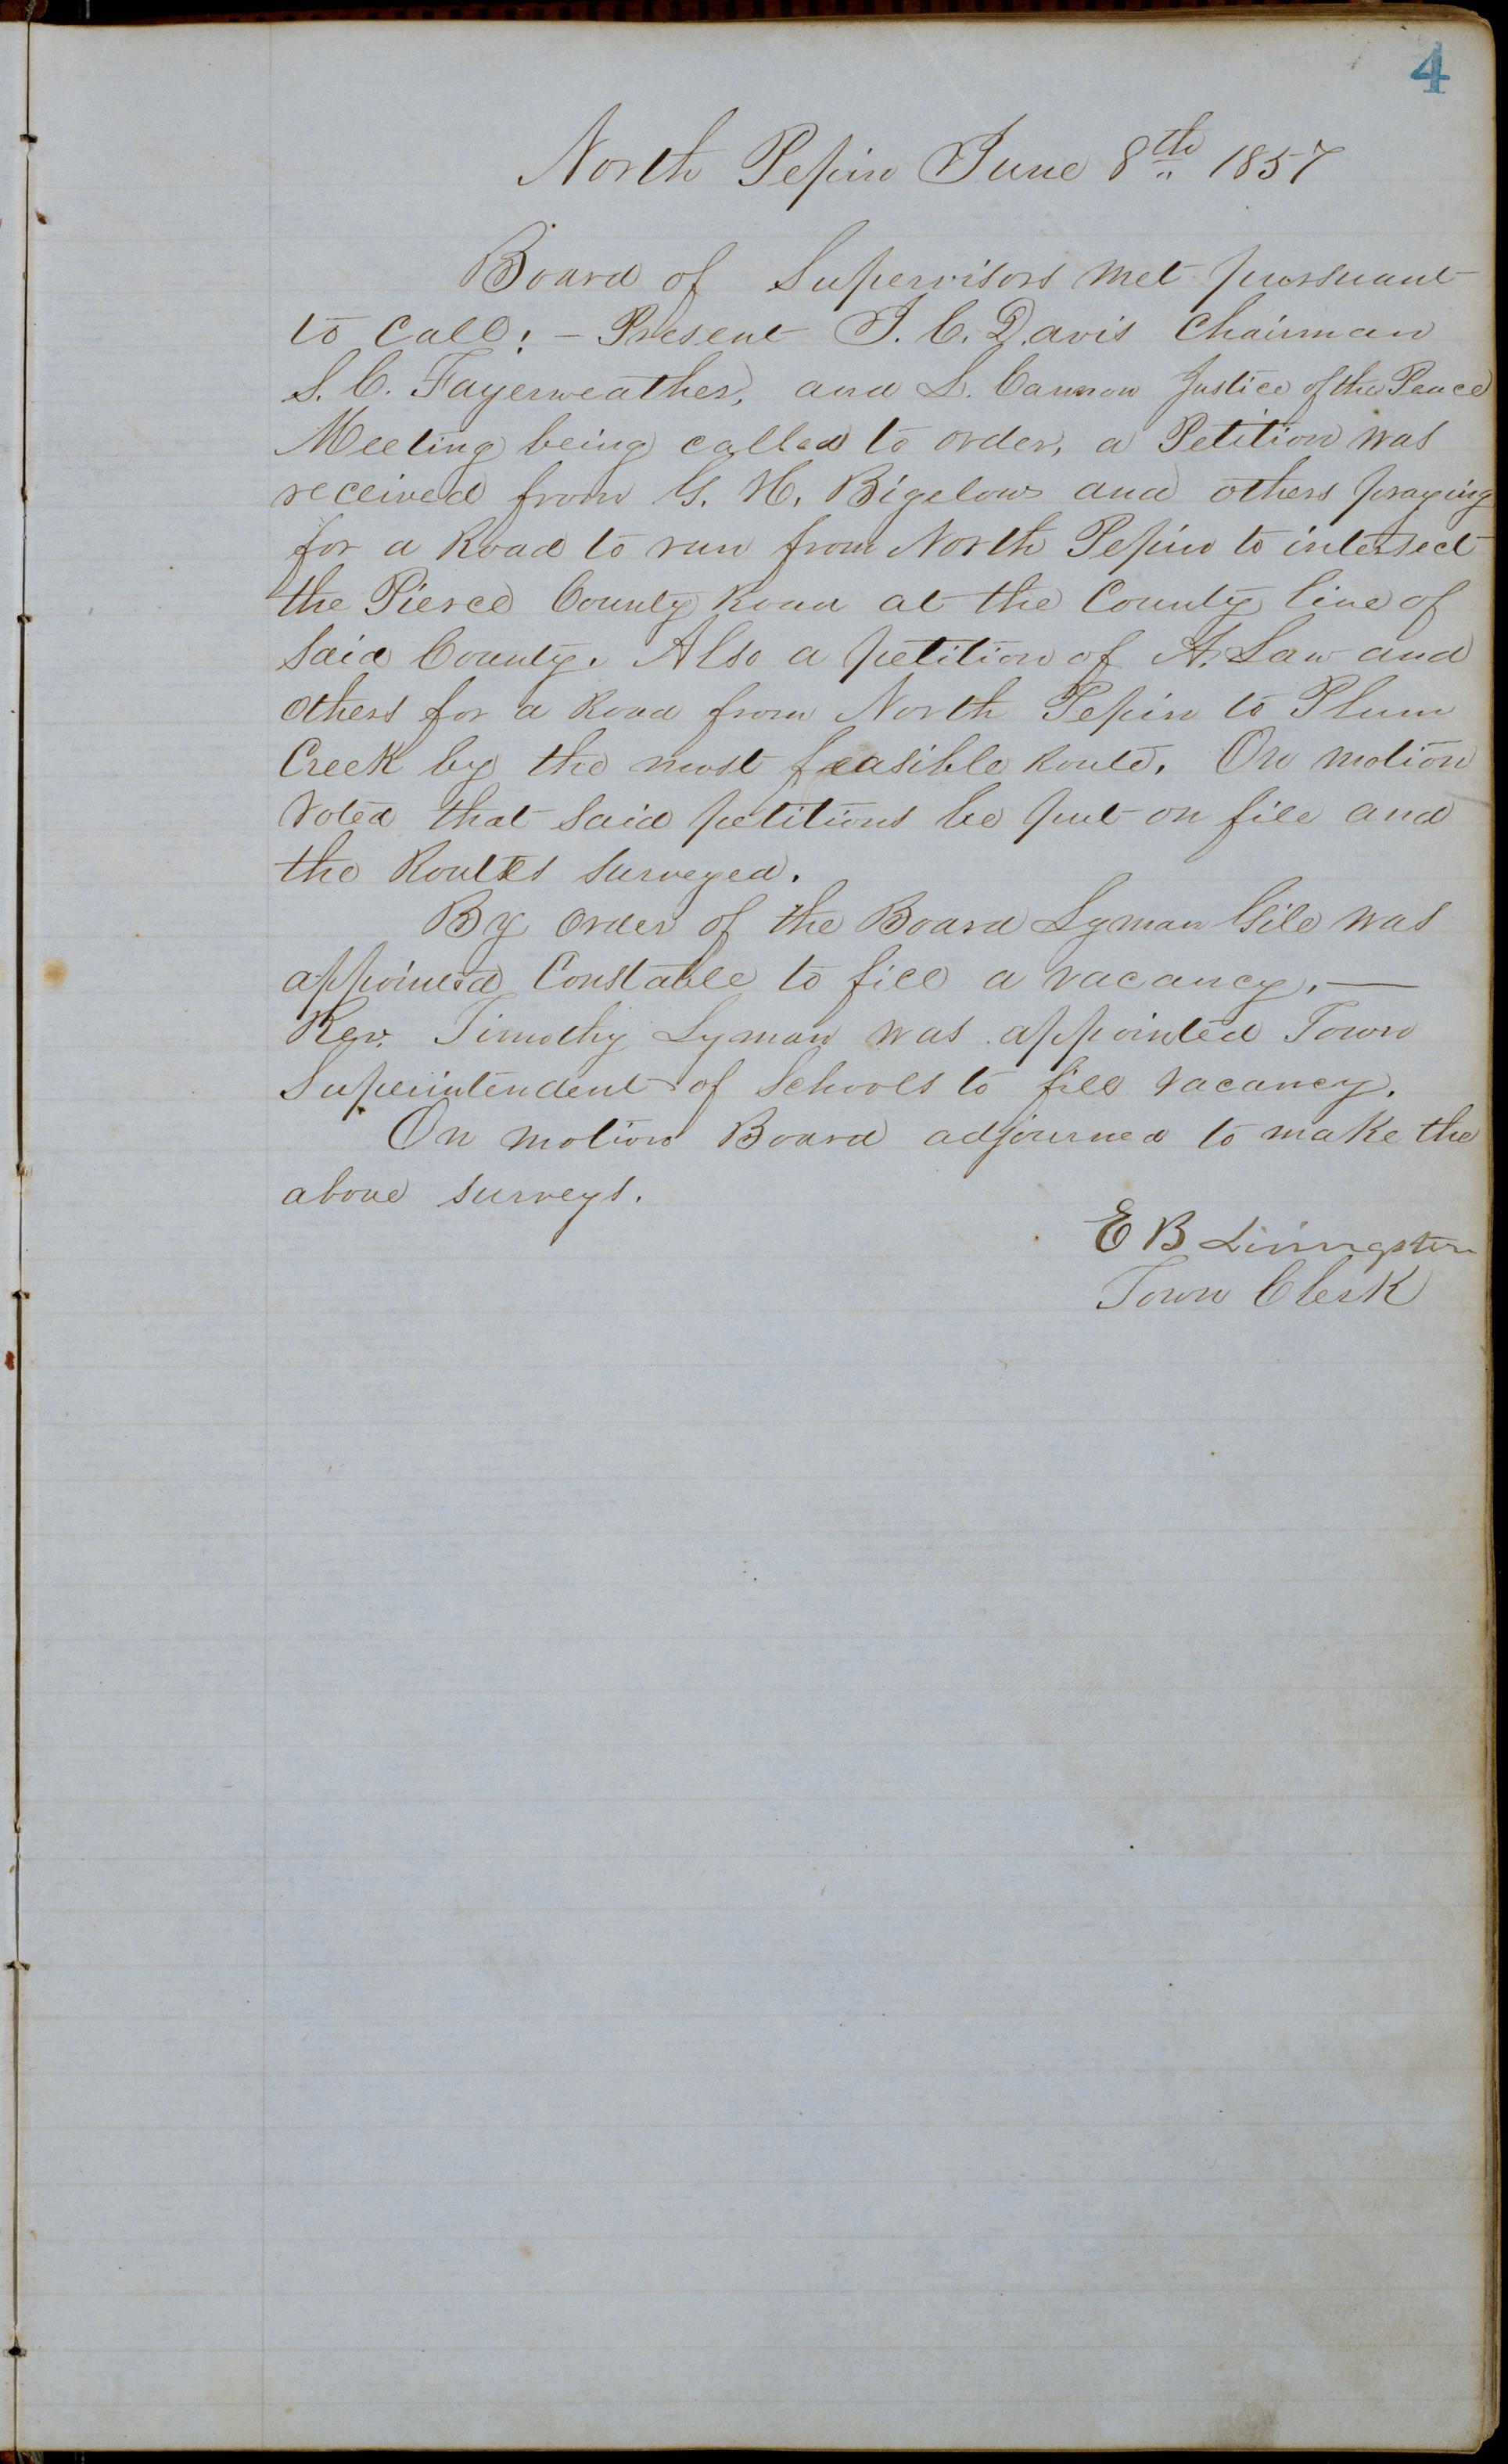 4
North Pepin June 8th 1857
Board of Supervisors met pursuant
to call: - Present J. C. Davis Chairman
S. C. Fayerweather, and L. Cannon Justice of the Peace
Meeting being called to order, a Petition was
received from G. H. Bigelow and others praying
for a Road to run from North Pepin to intersect
the Pierce County Road at the County line of
Said County. Also a petition of A. Law and
others for a Road from North Pepin to Plum
Creek by the most feasible Route. On motion
Voted that Said petitions be put on file and
the Routes surveyed.
By order of the Board Lyman Gile was
appointed Constable to fill a vacancy. —
Rev. Timothy Lyman was appointed Town
Superintendent of Schools to fill vacancy.
On motion Board adjourned to make the
above surveys.
E B Livingston
Town Clerk